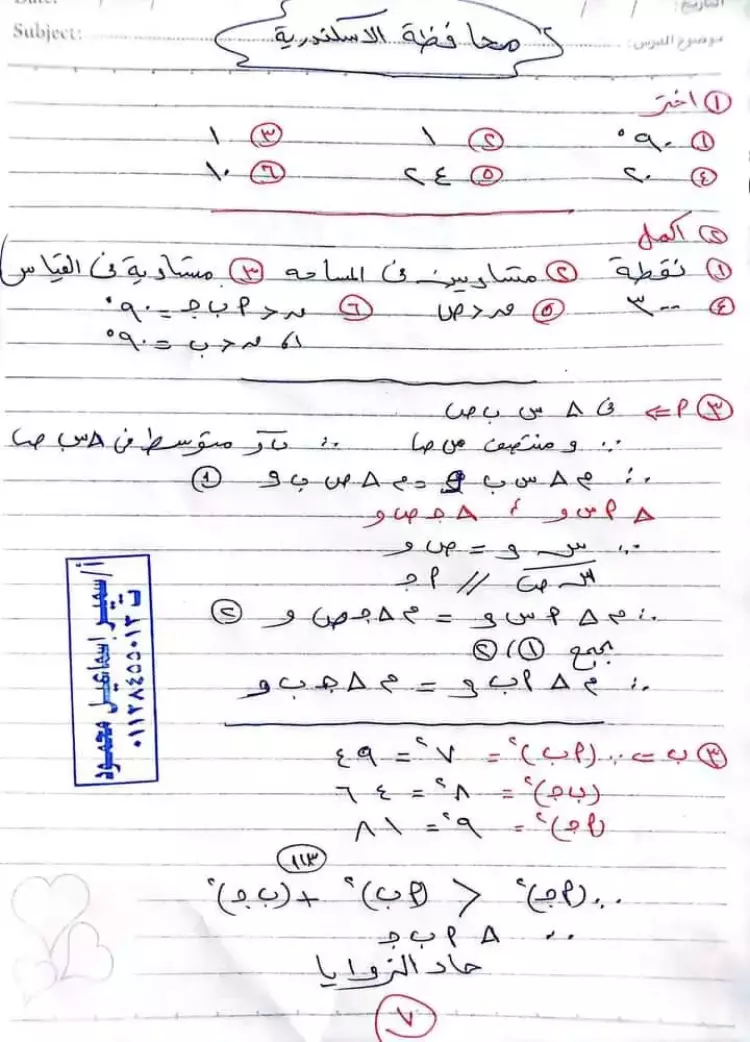 Subject:
التاريخ:
موضوع الدرس:
محافظة الاسكندرية
① اختر
① ٩٠° ② ١ ③ ١
④ ٢٠ ⑤ ٢٤ ⑥ ١٠
② اكمل
① نقطة ② متساويين فى المساحه ③ متساوية فى القياس
④ ٣٠٠ ⑤ ص > ⑥ ص > ٩٠° = ب ج
٩٠° = ب
③ ٢ ⇐ فى Δ س ب ص
∵ و منتصف س ص ∴ متوسط فى Δ س ب ص
∴ م Δ س ب و = م Δ ص ب و ①
Δ ٢ س و ، Δ ج ص و
∵ س و = ص و
س ص // ٢ ج
∴ م Δ ٢ س و = م Δ ج ص و ②
بجمع ① ، ②
∴ م Δ ٢ ب و = م Δ ج ب و
③ ب ⇐ ∵ (٢ ب)² = ٧² = ٤٩
(ب ج)² = ٨² = ٦٤
(٢ ج)² = ٩² = ٨١
١١٣
∵ (٢ ج)² < (٢ ب)² + (ب ج)²
∴ Δ ٢ ب ج
حاد الزوايا
٧
أ/ سمير اسماعيل محمود
ت ٠١١٢٨٤٥٥٠١٢